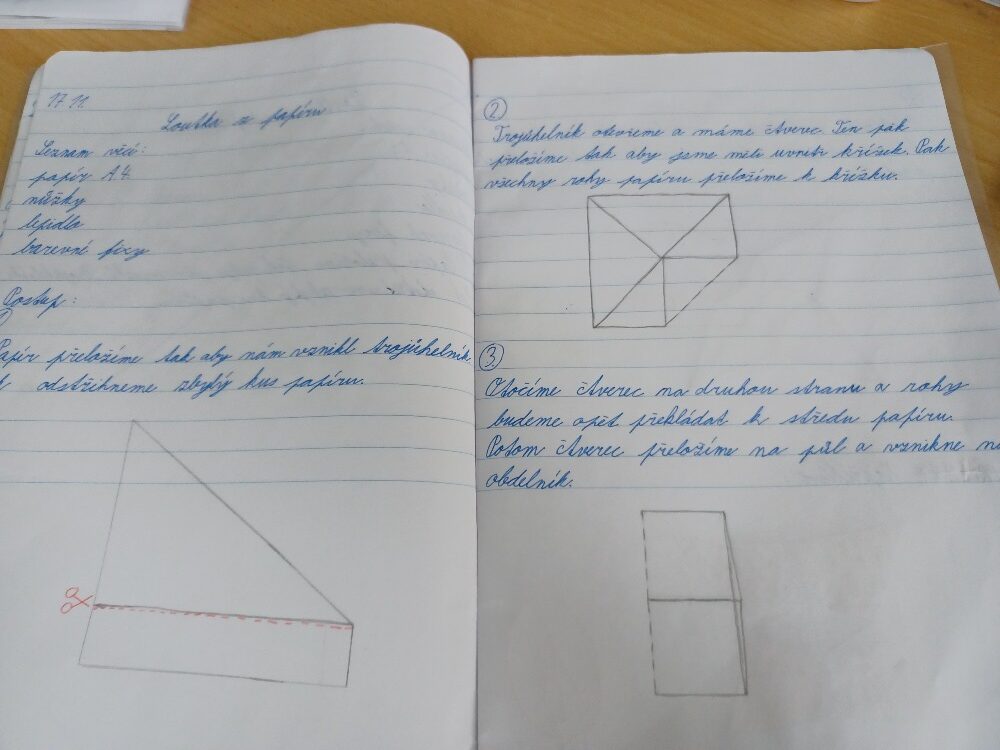 17. 11.
Loutka z papíru
Seznam věcí:
papír A4
nůžky
lepidlo
barevné fixy
Postup:
Papír přeložíme tak aby nám vznikl trojúhelník.
odstřihneme zbylý kus papíru.
2
Trojúhelník otevřeme a máme čtverec. Ten pak
přeložíme tak aby jsme měli uvnitř křížek. Pak
všechny rohy papíru přeložíme k křížku.
3.
Otočíme čtverec na druhou stranu a rohy
budeme opět překládat k středu papíru.
Potom čtverec přeložíme na půl a vznikne
obdelník.